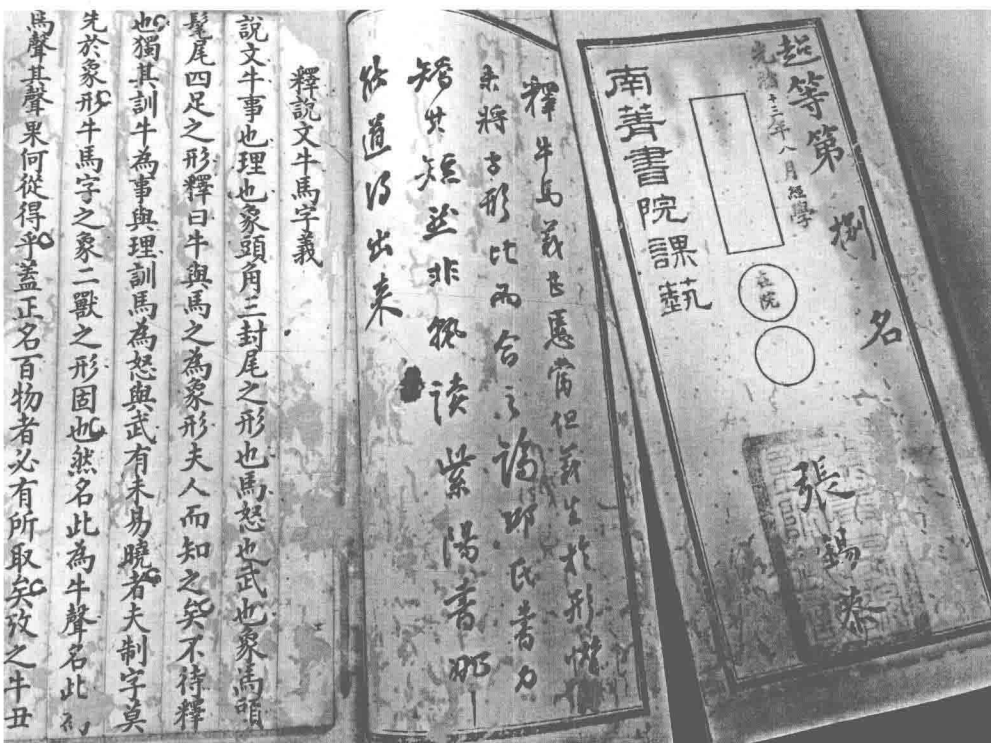 超等第捌名
光緒十三年八月經學
南菁書院課藝
在院
張錫恭
釋牛馬義甚愜當但義生於形惜
未將字形比而合之論邵氏書力
矯其短並非熟讀紫陽書那
能道得出來
釋說文牛馬字義
說文牛事也理也象頭角三封尾之形也馬怒也武也象馬頭
髦尾四足之形釋曰牛與馬之為象形夫人而知之矣不待釋
也獨其訓牛為事與理訓馬為怒與武有未易曉者夫制字莫
先於象形牛馬字之象二獸之形固也然名此為牛聲名此為
馬聲其聲果何從得乎蓋正名百物者必有所取矣攷之牛丑